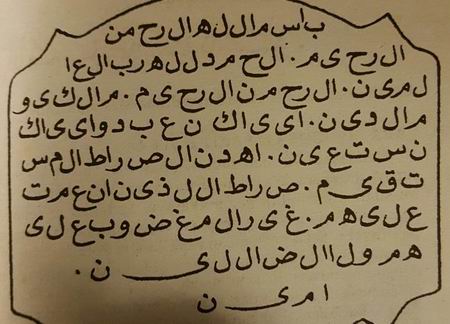 ب اس م ال ل ه ال رح من
ال رح ی م. ال ح م دل ل ه رب ال ع ا
ل م ی ن. ال رح م ن ال رح ی م. م ال ك ی و
م ال دی ن. ای ی اك ن ع ب د وای ی اك
ن س ت ع ی ن. اه دن ال ص راط ال م س
ت ق ی م. ص راط ال ل ذی ن ان ع م ت
ع ل ی ه م. غ ی رال م غ ض وب ع ل ی
ه م ول اال ض ال ل ی ن.
ام ی ن